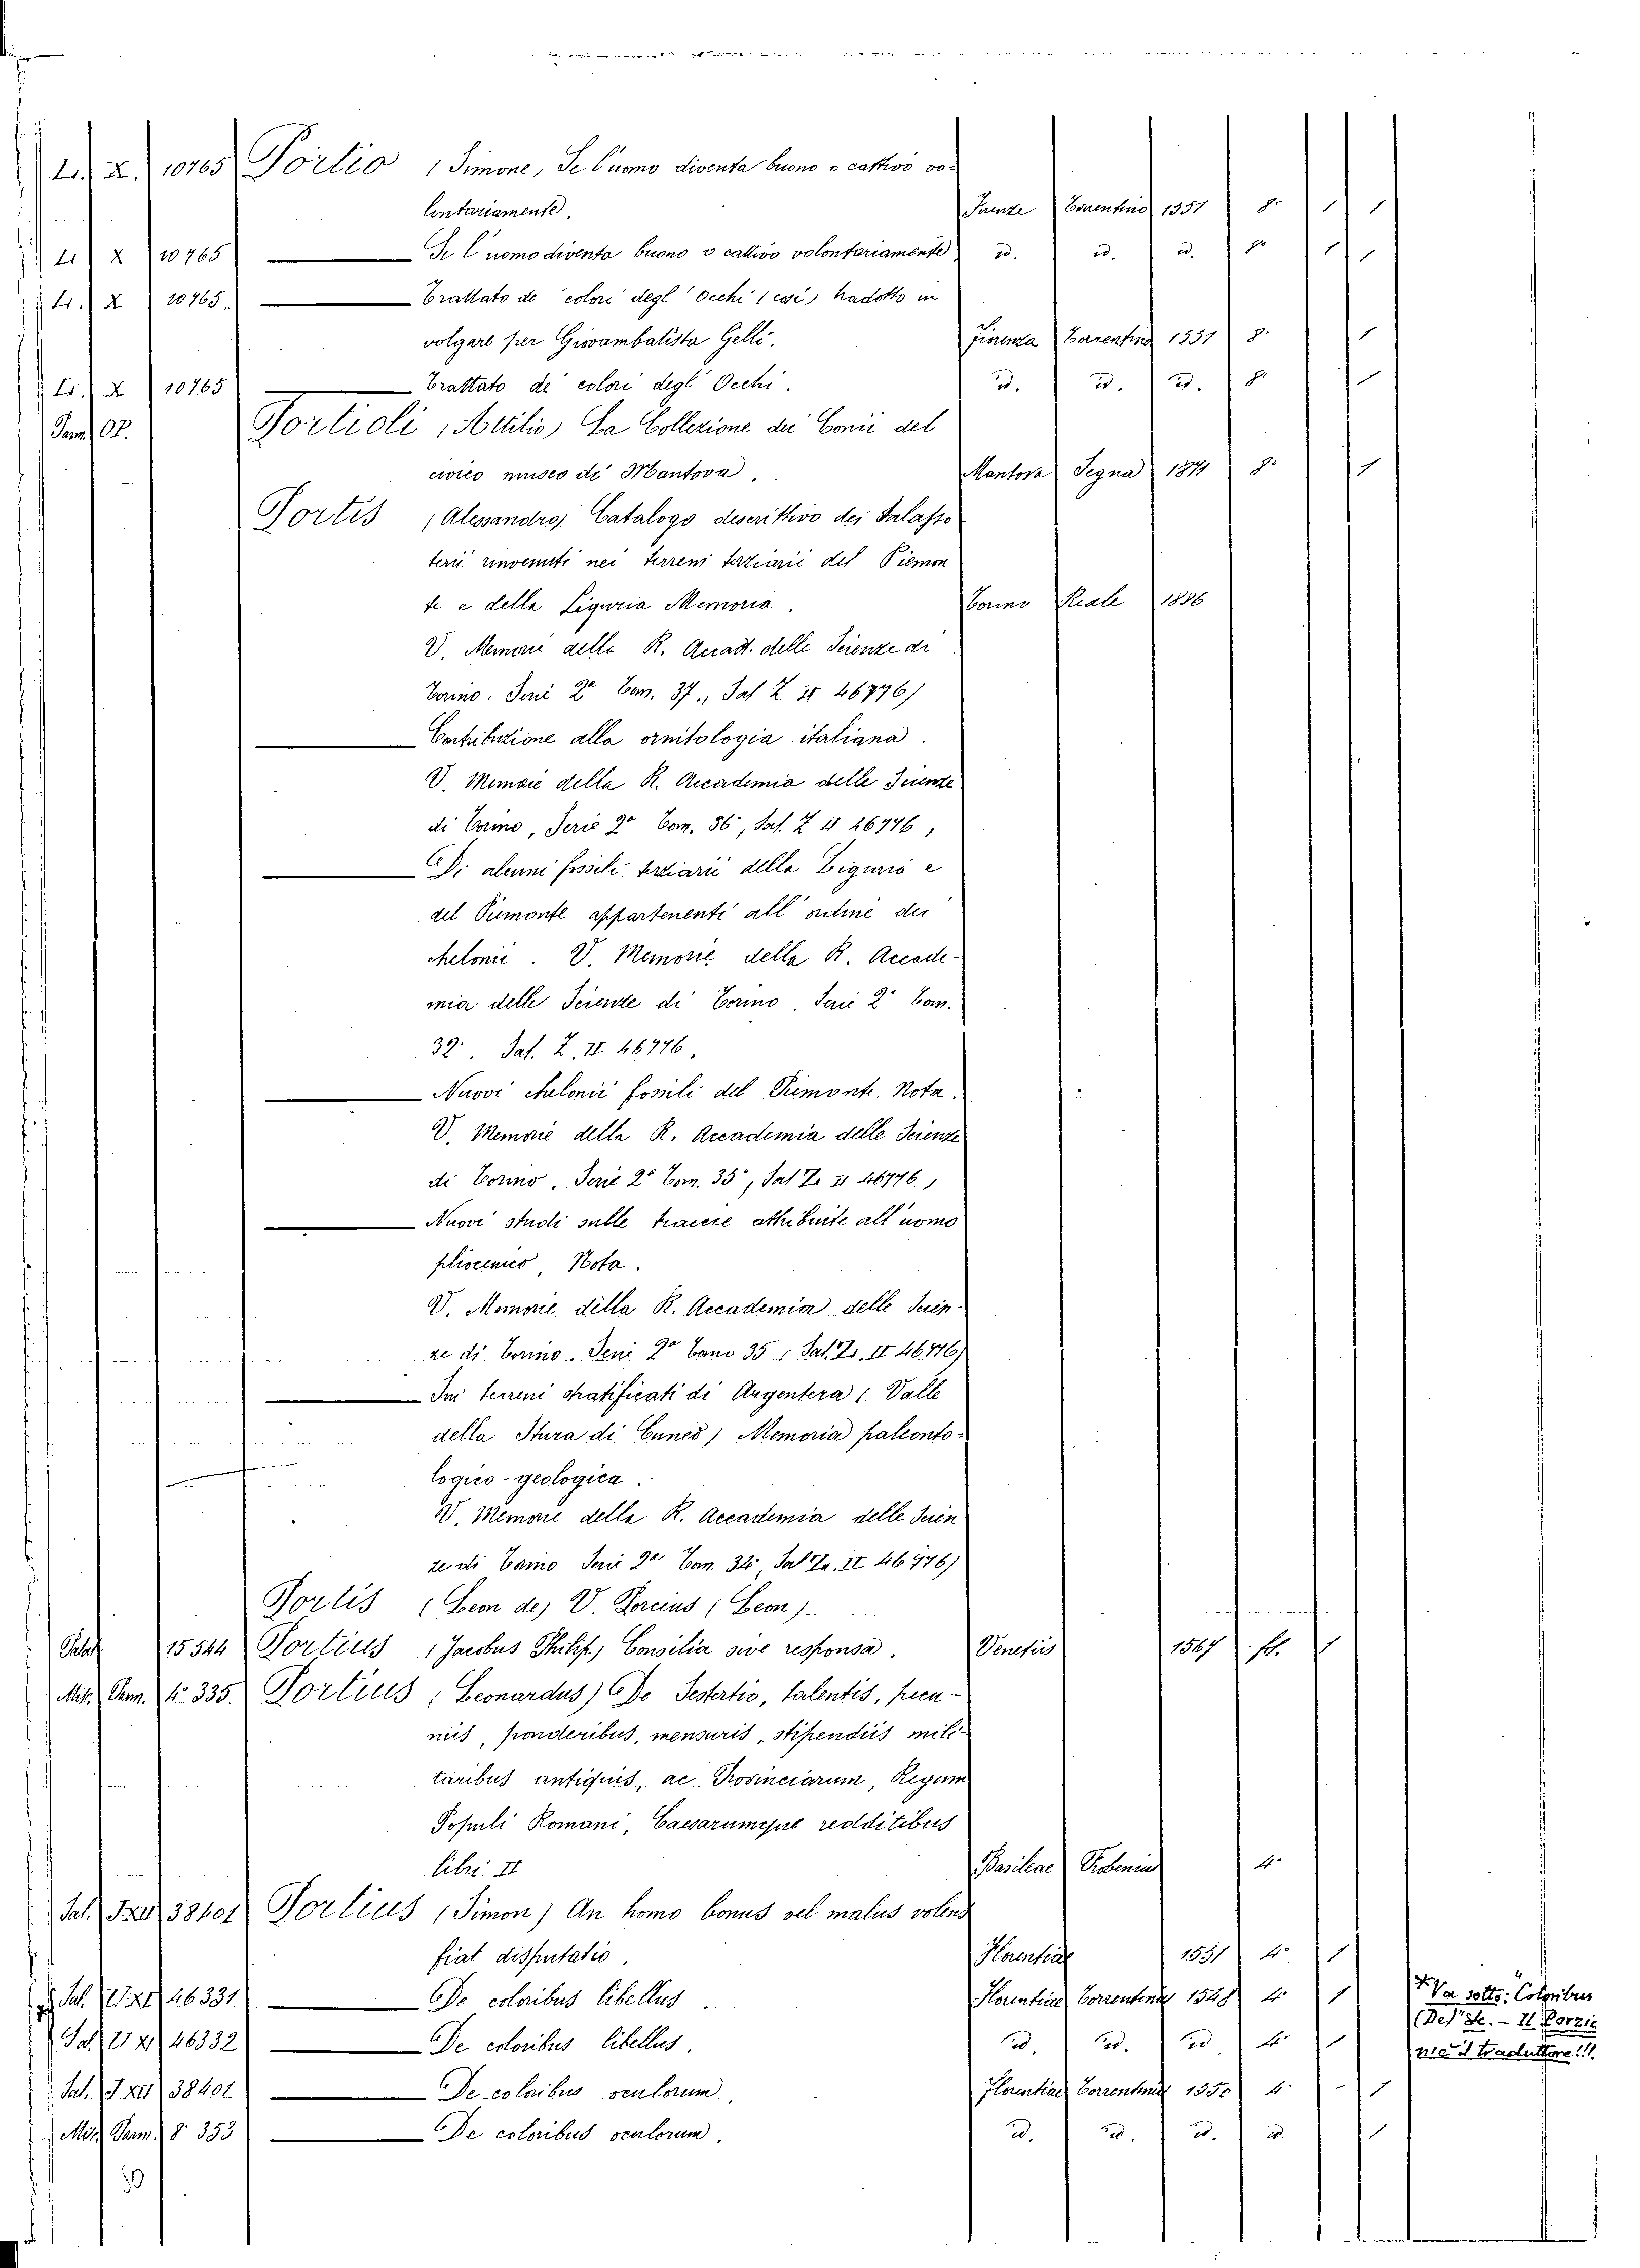 L. X. 10765 Portio (Simone, Se l'uomo diventa buono o cattivo vo-
lontariamente. Firenze Torrentino 1551 8° 1 1
L. X 10765 Se l'uomo diventa buono o cattivo volontariamente id. id. id. 8° 1 1
L. X 10765. Trattato de colori degl' Occhi (così) tradotto in
volgare per Giovambatista Gelli. Fiorenza Torrentino 1551 8° 1
L. X 10765 Trattato de' colori degl' Occhi. id. id. id. 8° 1
Portioli (Attilio) La Collezione dei Conii del
civico museo di Mantova. Mantova Segna 1871 8° 1
Portis (Alessandro) Catalogo descrittivo dei Talasso
terii rinvenuti nei terreni terziarii del Piemon
te e della Liguria Memoria. Torino Reale 1886
V. Memorie della R. Accad. delle Scienze di
Torino. Serie 2ª Tom. 37., Sal Z II 46776)
Contribuzione alla ornitologia italiana.
V. Memorie della R. Accademia delle Scienze
di Torino, Serie 2ª Tom. 36, Sal. Z II 46776,
Di alcuni fossili terziarii della Liguria e
del Piemonte appartenenti all' ordine dei
chelonii. V. Memorie della R. Accade-
mia delle Scienze di Torino. Serie 2ª Tom.
32. Sal. Z. II 46776,
Nuovi chelonii fossili del Piemonte. Nota.
V. Memorie della R. Accademia delle Scienze
di Torino. Serie 2ª Tom. 35, Sal Z. II 46776.,
Nuovi studi sulle traccie attribuite all' uomo
pliocenico, Nota.
V. Memorie della R. Accademia delle Scien-
ze di Torino. Serie 2ª Tomo 35, Sal. Z. II 46776)
Sui terreni stratificati di Argentera (Valle
della Stura di Cuneo) Memoria paleonto-
logico-geologica.
V. Memorie della R. Accademia delle Scien
ze di Torino Serie 2ª Tom. 34, Sal Z. II 46776)
Portis (Leon de) V. Porcius (Leon)
15544 Portius (Jacobus Philip.) Consilia sive responsa. Venetiis 1567 fol. 1
Misc. Pam. 4° 335. Portius (Leonardus) De Sestertio, talentis, pecu-
niis, ponderibus, mensuris, stipendiis mili-
taribus antiquis, ac Provinciarum, Regum
Populi Romani, Caesarumque redditibus
libri II Basileae Frobenius 4°
Sal. 38401 Portius (Simon) An homo bonus vel malus volens
fiat disputatio. Florentiae 1551 4° 1
Sal. 46331 De coloribus libellus. Florentiae Torrentinus 1548 4° 1
46332 De coloribus libellus. id. id. id 4° 1
Sal. 38401 De coloribus oculorum. Florentiae Torrentinus 1550 4° 1
Misc. Pam. 8° 353 De coloribus oculorum. id. id. id. id. 1
Va sotto: Coloribus
(De) etc. - Il Porzio
n'è il traduttore!!!